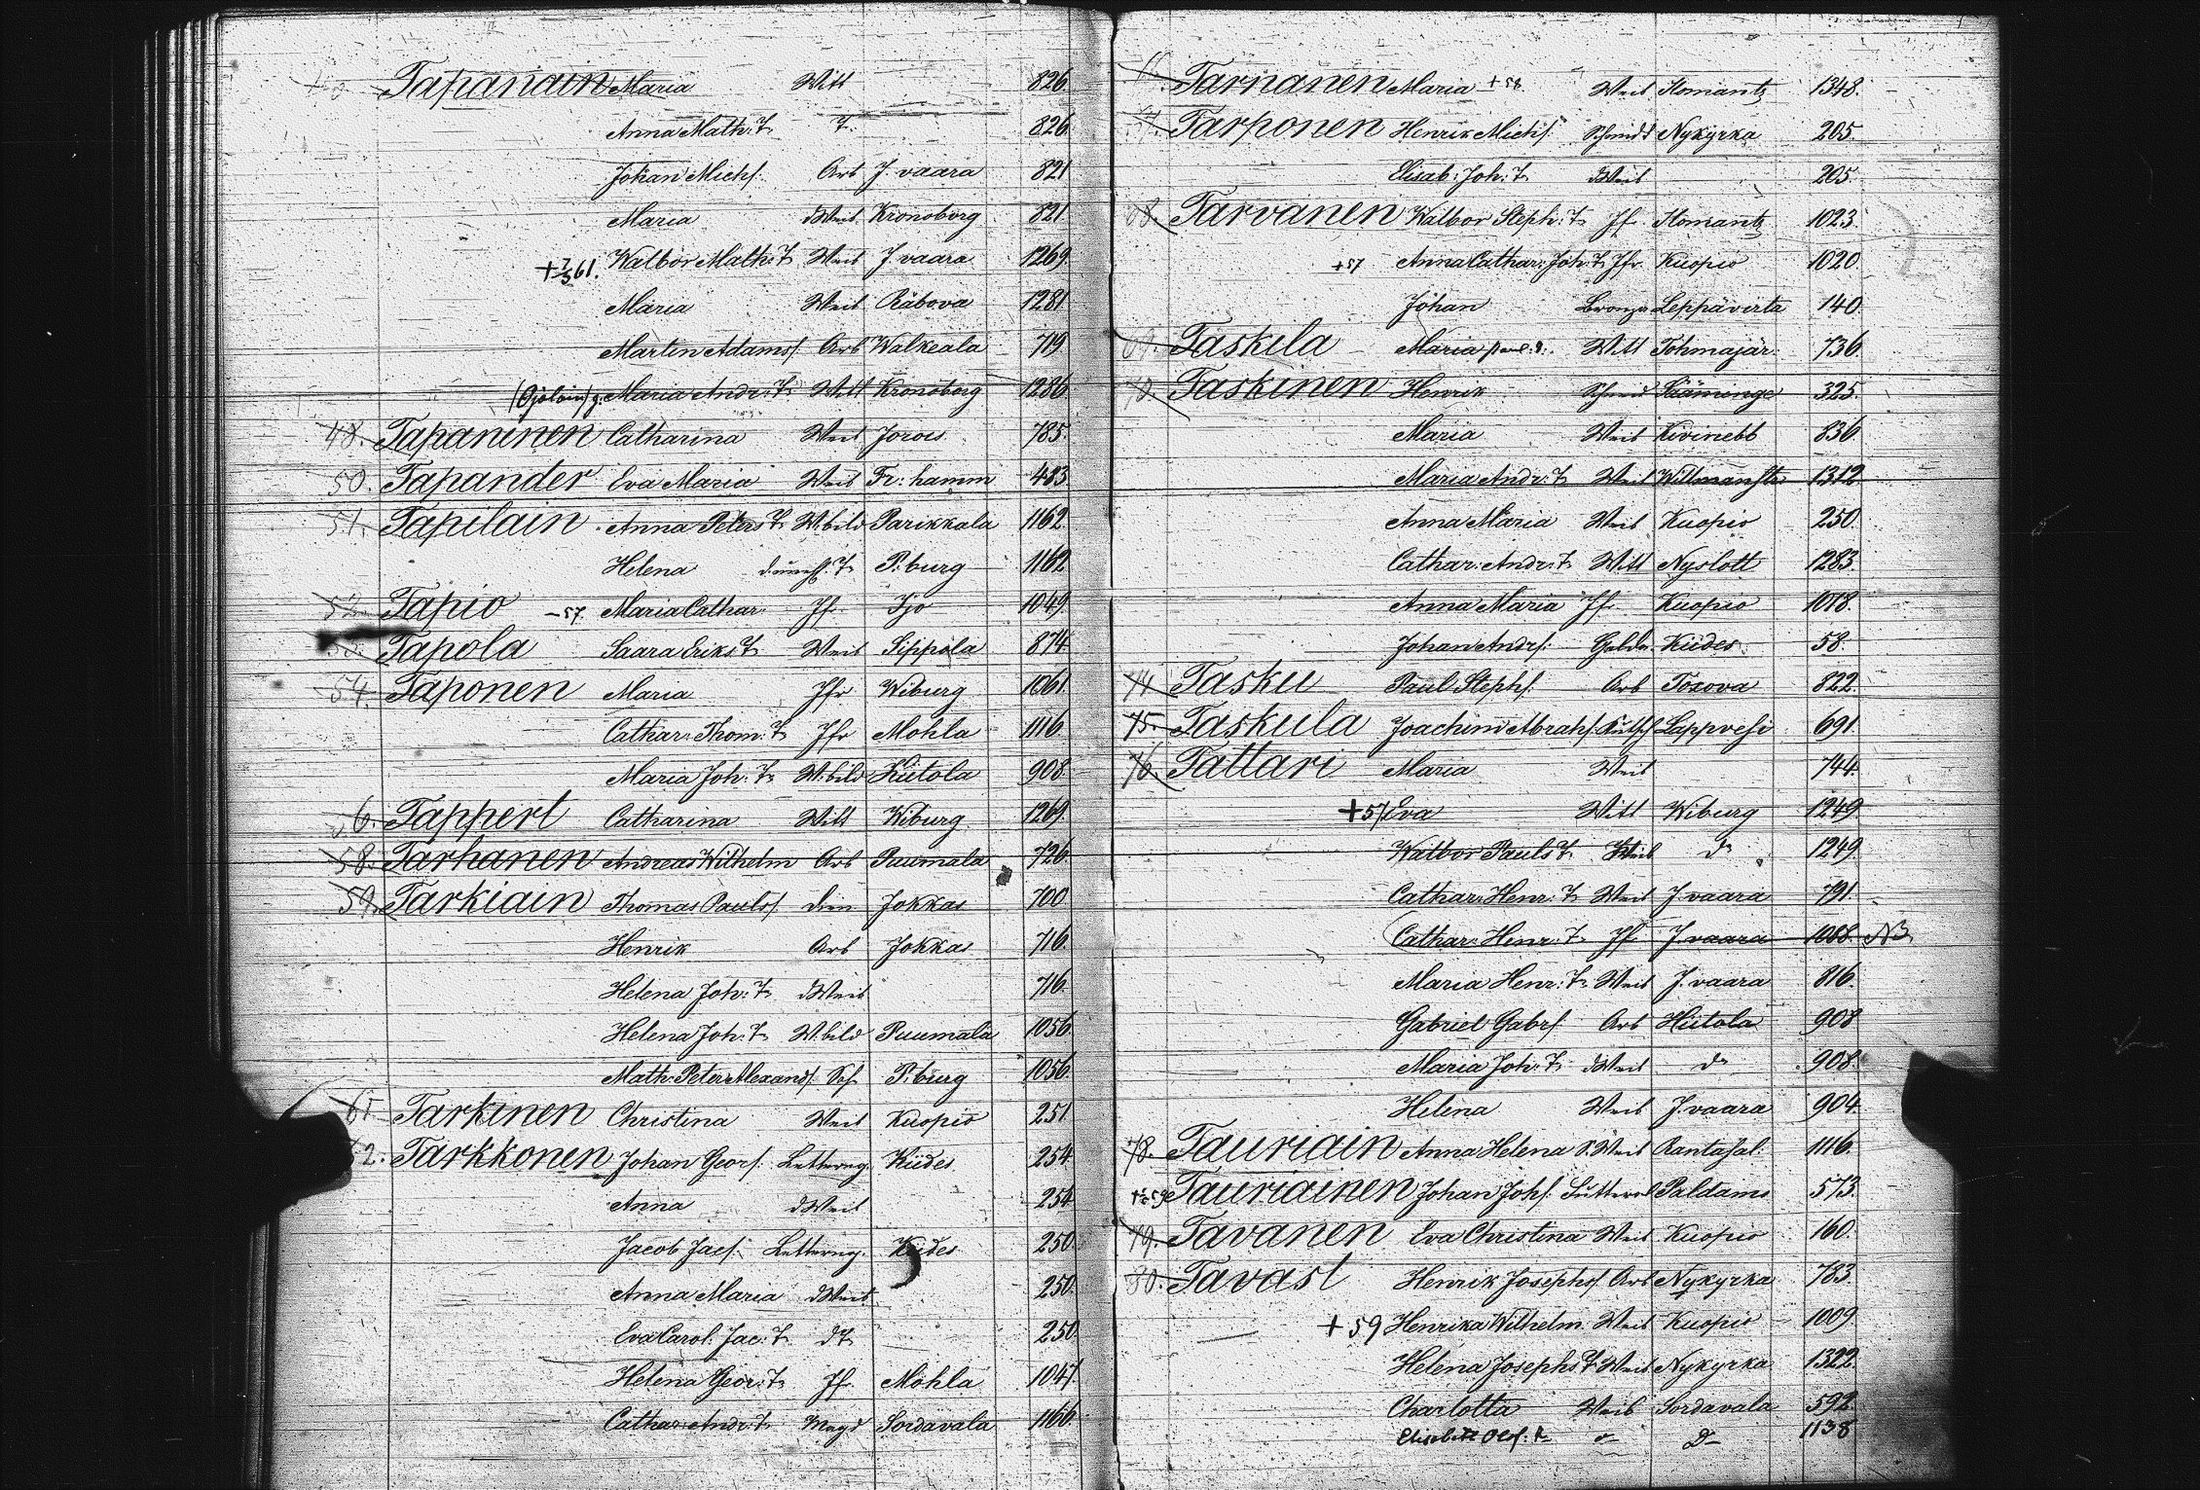 Tapanain Maria Witt 826.
Anna Math: T. T. 826.
Johan Michs. Arb J. vaara 821
Maria dWeib Kronoborg 821.
+ 7/3 61. Walbor Math: T. Weib J. vaara 1269.
Maria Weib Räbova 1281.
Martin Adams. Arb Walkeala 719
Maria Andr: T. Witt Kronoborg 1286.
48. Tapaninen Catharina Weib Jorois 785.
50. Tapander Eva Maria Weib Fr: hamm 483.
51. Tapilain Anna Peters T. W.bild Parikkala 1162.
Helena T. P: burg 1162.
52. Tapio -57. Maria Cathar. Jf. Ijo 1049.
Tapola Saara Eriks T. Weib Sippola 874.
54. Taponen Maria Jfr Wiburg 1061.
Cathar: Thom: T. Jfr Mohla 1116.
Maria Joh: T. W.bild Hiitola 908.
6. Tappert Catharina Witt Wiburg 1269.
58. Tarhanen Andreas Wilhelm Arb Puumala 726.
59. Tarkiain Thomas Pauls. dim Jokkas 700.
Henrik Arb Jokkas 716.
Helena Joh: T. dWeib 716.
Helena Joh: T. W.bild Puumala 1056.
Math: Peter Alexand. P: burg 1056.
61. Tarkinen Christina Weib Kuopio 251
62. Tarkkonen Johan Geors. Letterng. Kides 254
Anna dWeib 254
Jacob Jacs. Letterng. Kides 250
Anna Maria dWeib. 250.
Eva Carol. Jac: T. dT. 250
Helena Geor: T. Jf. Mohla 1047.
Cathar: Andr: T. Magd Sordavala 1166.
Tarnanen Maria +58. Weib Ilomants 1348.
67. Tarponen Henrik Michs. Schmidt Nykyrka 205.
Elisab: Joh: T. dWeib 205.
68. Tarvanen Walbor Steph: T. Jf. Ilomants 1023.
+57 Anna Cathar: Joh: T. Jfr. Kuopio 1020.
Johan Leppävirta 140.
69. Taskila Maria Paul: T. Witt Tohmajär. 736.
70. Taskinen Henrik Schmid Sääminge 325.
Maria Weib Kivinebb 836.
Maria Andr: T. Weib Willmanstr 1312
Anna Maria Weib Kuopio 250.
Cathar: Andr: T. Witt Nyslott 1283.
Anna Maria Jf. Kuopio 1078.
Johan Andrs. Kides. 58.
74 Tasku Paul Stephs. Arb Toxova 822.
75. Taskula Joachim Abrahs. Lappvesi 691.
76. Tattari Maria Weib 744.
+57 Eva Witt Wiburg 1249.
Walbor Pauls T. Weib do 1249.
Cathar: Henr: T. Weib J. vaara 791.
Cathar: Henr: T. Jf. J. vaara 1088. NB
Maria Henr: T. Weib J. vaara 816.
Gabriel Gabrs. Arb Hiitola 908
Maria Joh: T. dWeib do 908.
Helena Weib J. vaara 904
78. Tauriain Anna Helena S. Weib Rantasal: 1116.
Tauriainen Johan Johs. Paldamo 573.
79. Tavanen Eva Christina Weib Kuopio 160.
80. Tavast Henrik Josephs. Arb Nykyrka 783.
+59 Henrika Wilhelm. Weib Kuopio 1009.
Helena Josephs T. Weib Nykyrka 1322.
Charlotta Weib Sordavala 592.
Elisabeth Olof. T. D 1138